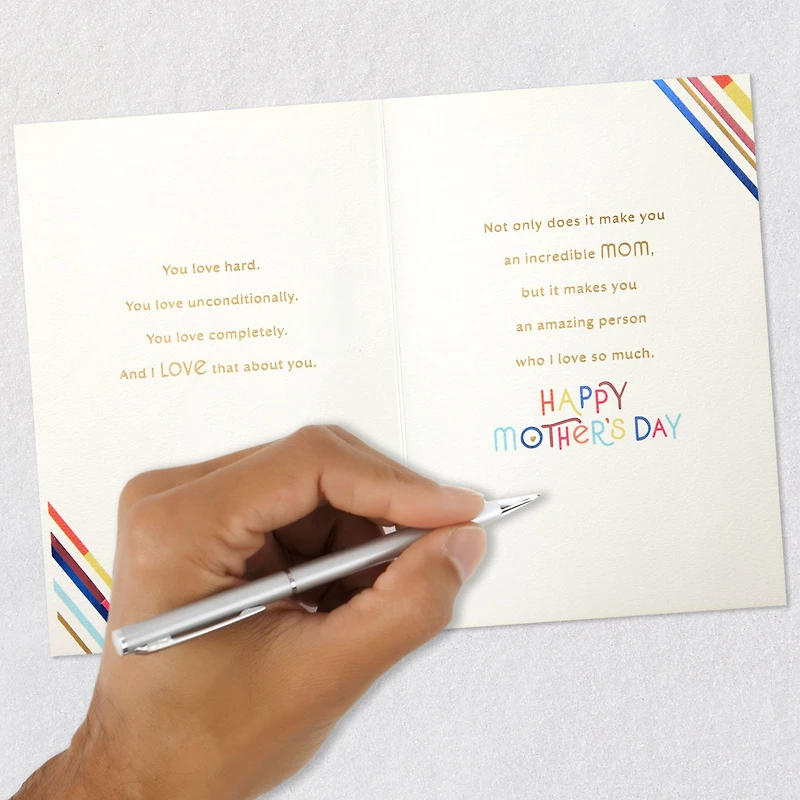 You love hard.
You love unconditionally.
You love completely.
And I LOVE that about you.
Not only does it make you
an incredible MOM,
but it makes you
an amazing person
who I love so much.
HAPPY
MOTHER'S DAY